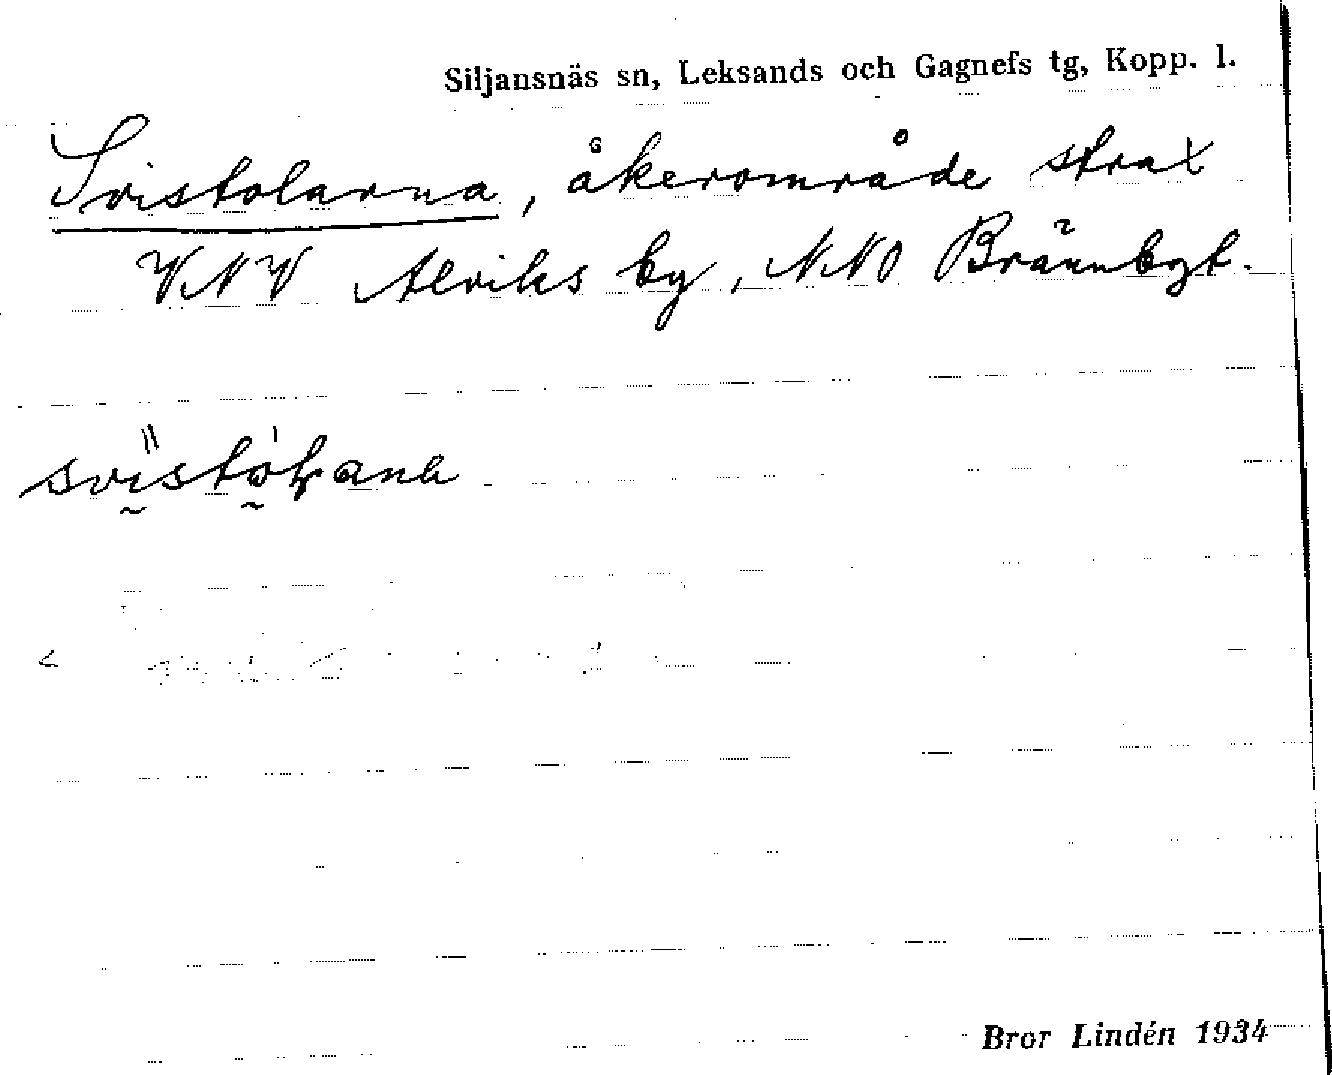 Siljansnäs sn, Leksands och Gagnefs tg, Kopp. l.
Svistolarna, åkerområde strax
VNV Alviks by, NNO Brännbgt.
svistoɫ̣ana
Bror Lindén 1934